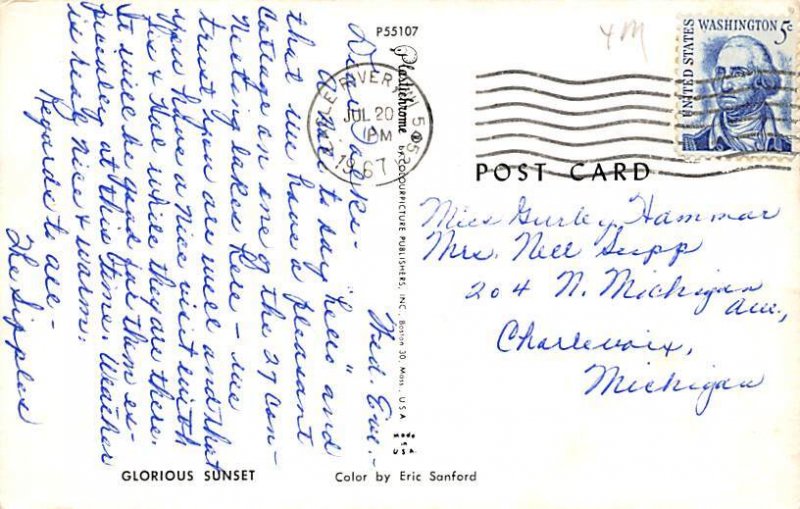 P55107
Wed. Eve.-
Dear Folks-
Will to say "hello" and
that we have a pleasant
Cottage on one of the 27 con-
necting lakes here - we
trust you are well and that
you have a nice visit with
& Hal while they are there.
It will be good for them es-
pecially at this time. Weather
is real nice & warm.
Regards to all-
The Sipples
GLORIOUS SUNSET
Color by Eric Sanford
Plastichrome by COLOURPICTURE PUBLISHERS, INC., Boston 30, Mass., U.S.A.
Made in U.S.A.
RIVER
JUL 20
1 PM
1967
UNITED STATES
WASHINGTON 5c
POST CARD
Miss Gurley Hammar
Mrs. Nell Supp
204 N. Michigan
Ave.,
Charlevoix,
Michigan